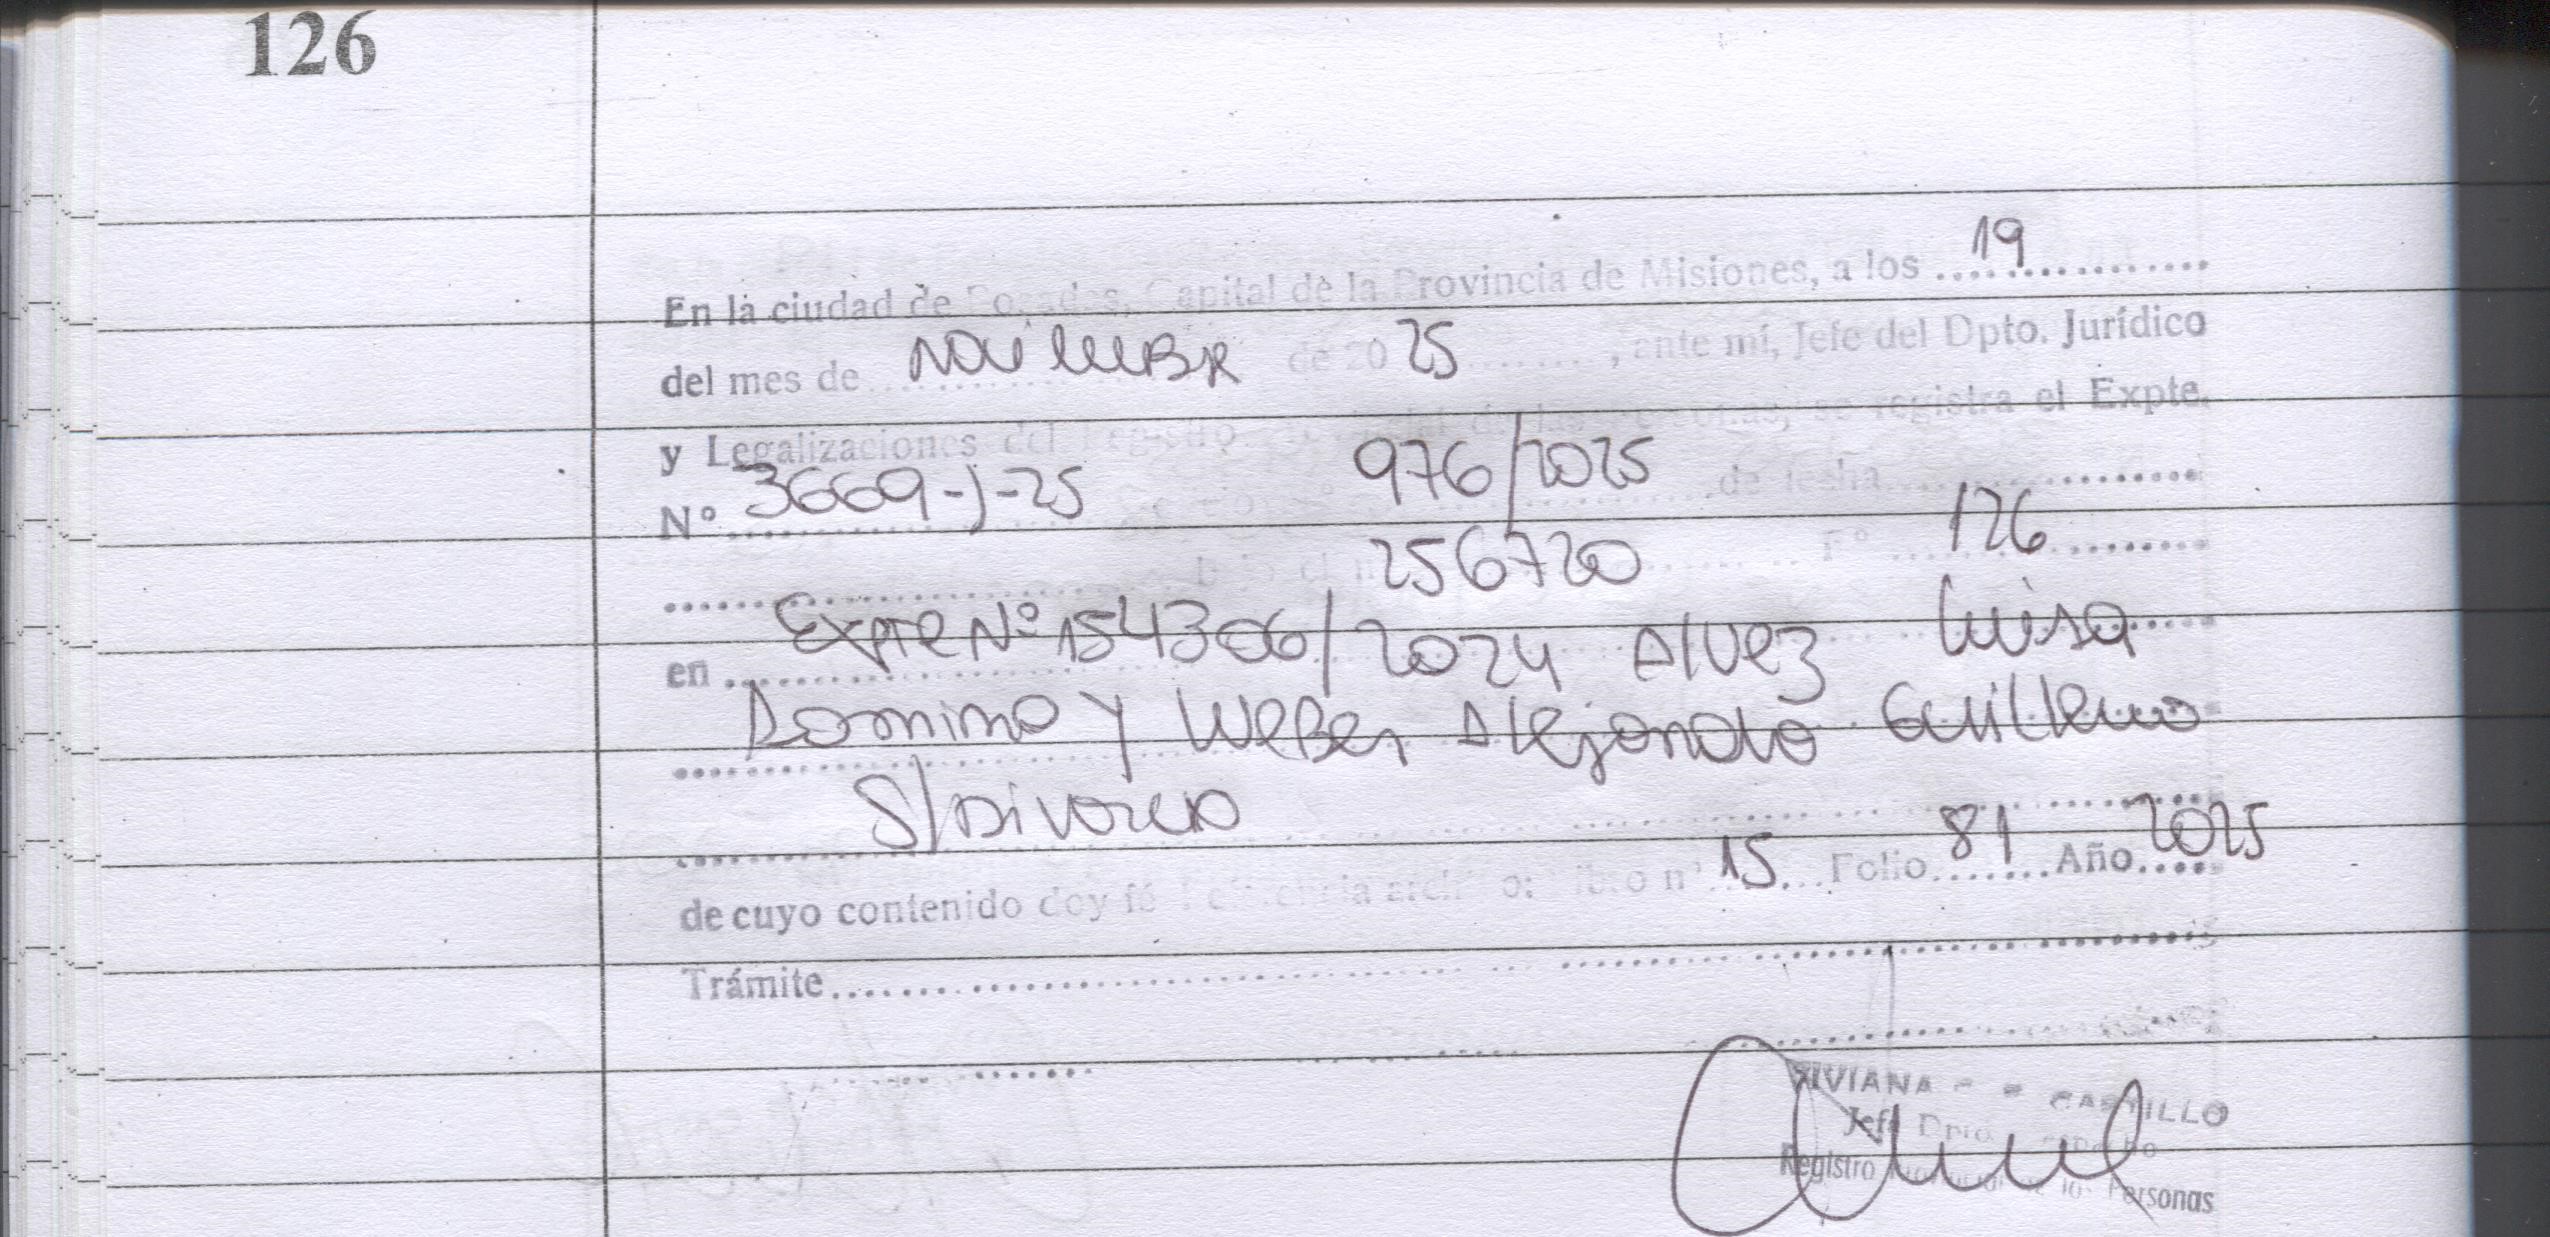 126
En la ciudad de Posadas, Capital de la Provincia de Misiones, a los 19
del mes de Noviembre de 20 25, ante mí, Jefe del Dpto. Jurídico
y Legalizaciones del Registro Provincial de las Personas, se registra el Expte.
Nº 3669-J-25 976/2025 de fecha
256720 Fº 126
en Expte Nº 154306/2024 Alvez Luisa
Romina y Weber Alejandro Guillermo
S/Divorcio
de cuyo contenido doy fé Referencia archivo: Libro nº 15 Folio 81 Año 2025
Trámite
VIVIANA CASTILLO
Jefe Dpto.
Registro Provincial de las Personas